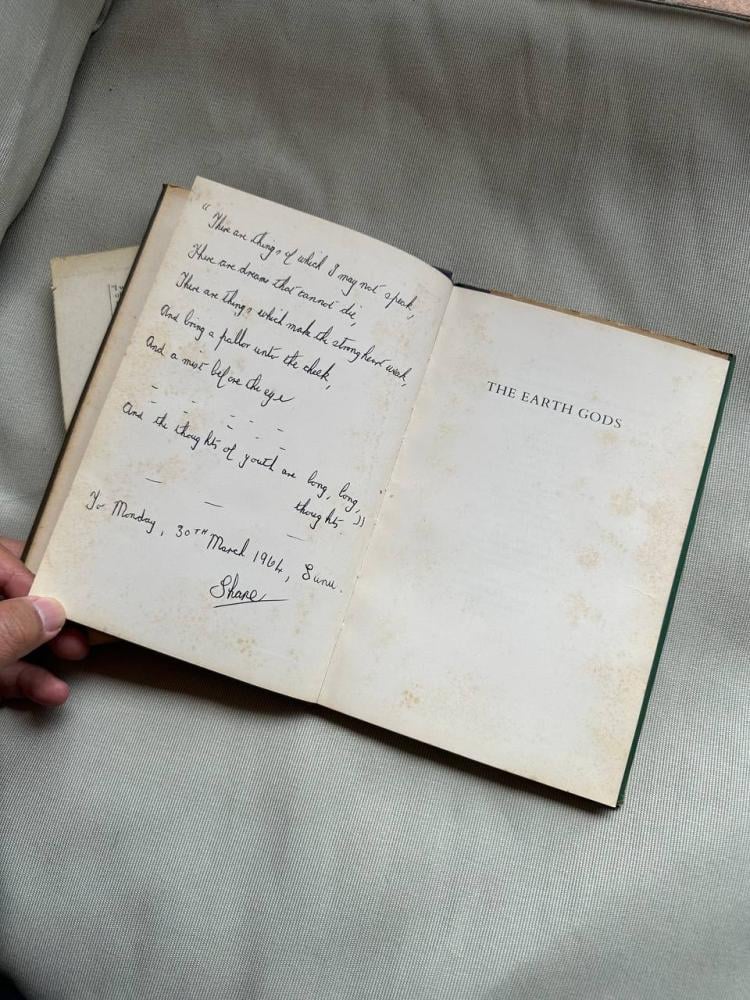 “There are things of which I may not speak,
There are dreams that cannot die,
There are things which make the strong heart weak,
And bring a pallor unto the cheek,
And a mist before the eye
— — — — —
And the thoughts of youth are long, long,
thoughts.”
— — —
To Monday, 30TH March 1964, Sunu.
Share
THE EARTH GODS